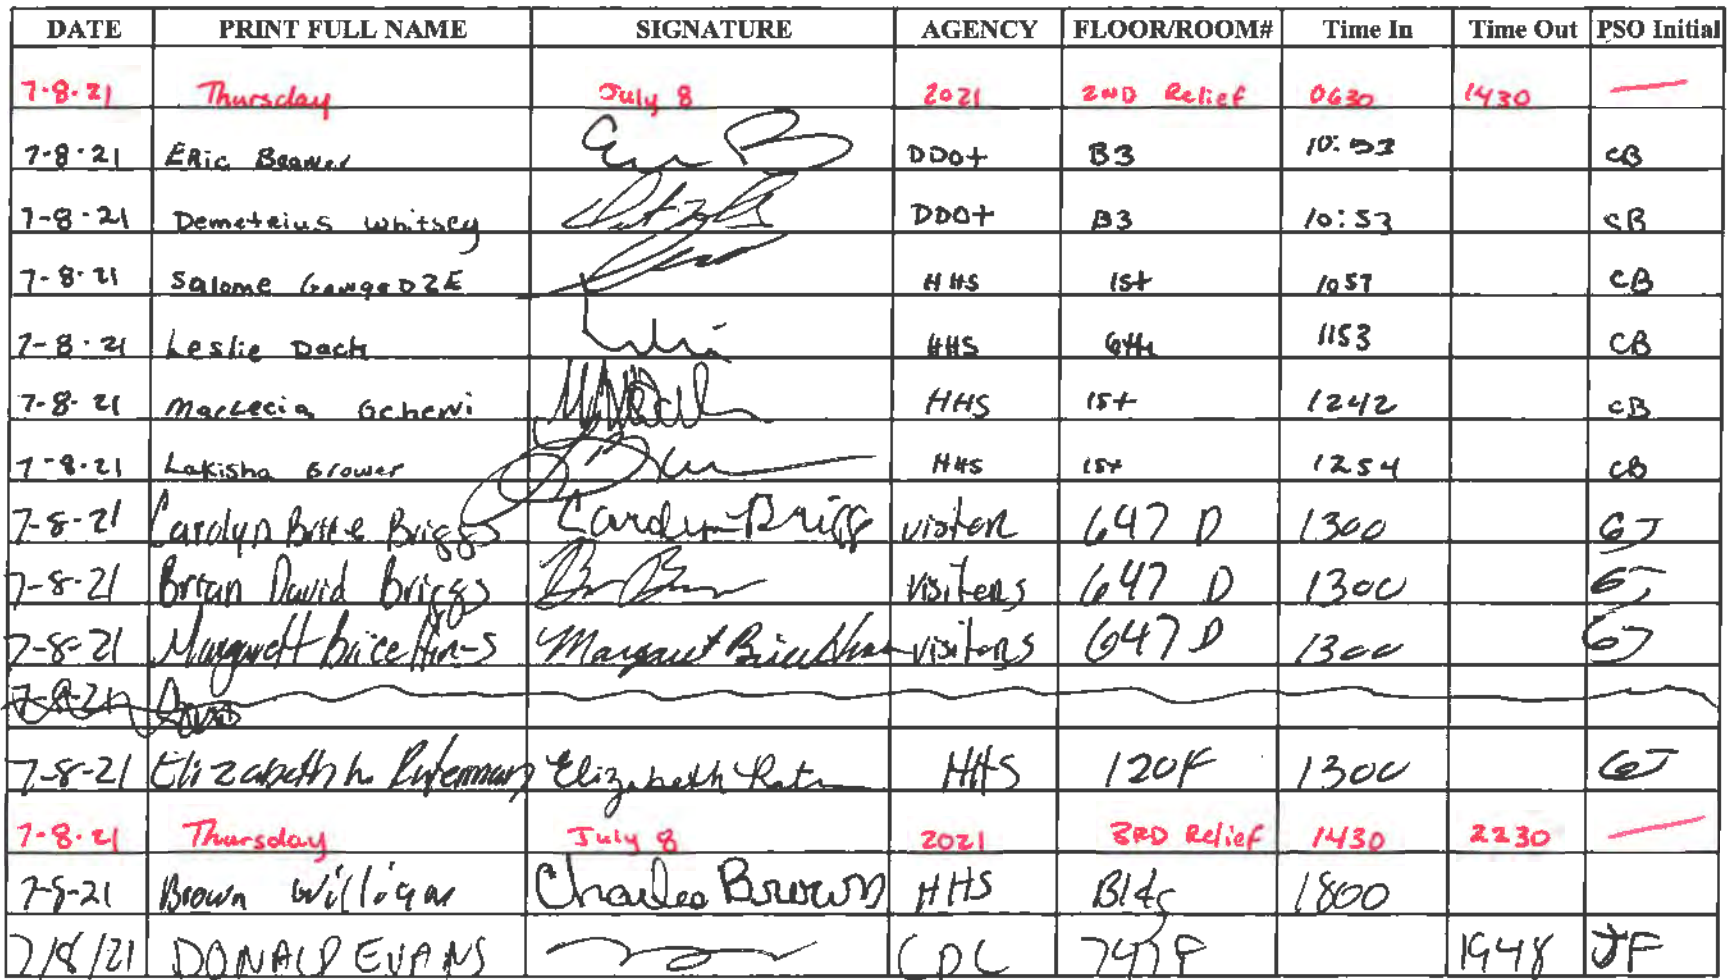 DATE PRINT FULL NAME SIGNATURE AGENCY FLOOR/ROOM# Time In Time Out PSO Initial
7-8-21 Thursday July 8 2021 2ND Relief 0630 1430 —
7-8-21 Eric DDOT B3 10:53 CB
7-8-21 Demetrius Whitsey DDOT B3 10:53 CB
7-8-21 Salome HHS 1st 1057 CB
7-8-21 Leslie Dach HHS 6th 1153 CB
7-8-21 HHS 1st 1242 CB
7-8-21 Lakisha HHS 1st 1254 CB
7-8-21 Carolyn Briggs Carolyn Brigg visitor 647 D 1300 GJ
7-8-21 Brian David Briggs visitors 647 D 1300 GJ
7-8-21 Margarett Brice Margaret visitors 647 D 1300 GJ
7-8-21
7-8-21 Elizabeth Elizabeth HHS 120F 1300 GJ
7-8-21 Thursday July 8 2021 3RD Relief 1430 2230 —
7-8-21 Brown Charles Brown HHS Bldg 1800
7/8/21 DONALD EVANS 747F 1948 JF